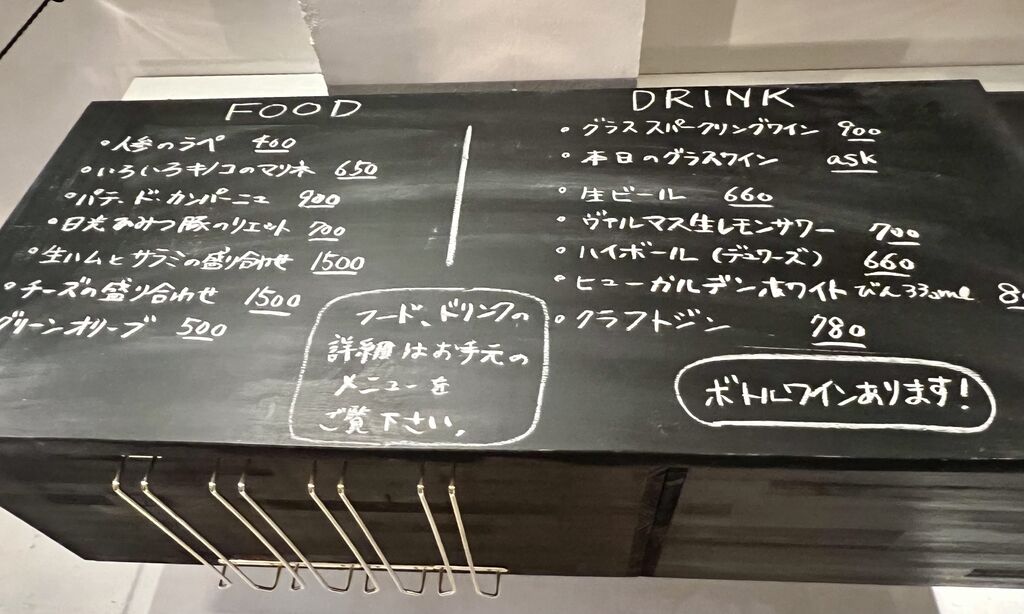 FOOD
・人参のラペ 400
・いろいろキノコのマリネ 650
・パテ、ド、カンパーニュ 900
・日光みつ豚のリエット 700
・生ハムとサラミの盛り合わせ 1500
・チーズの盛り合わせ 1500
グリーンオリーブ 500
フード、ドリンクの
詳細はお手元の
メニューを
ご覧下さい。
DRINK
・グラススパークリングワイン 900
・本日のグラスワイン ask
・生ビール 660
・ヴァルマス生レモンサワー 700
・ハイボール（デュワーズ） 660
・ヒューガルデンホワイト びん330ml
・クラフトジン 780
ボトルワインあります！